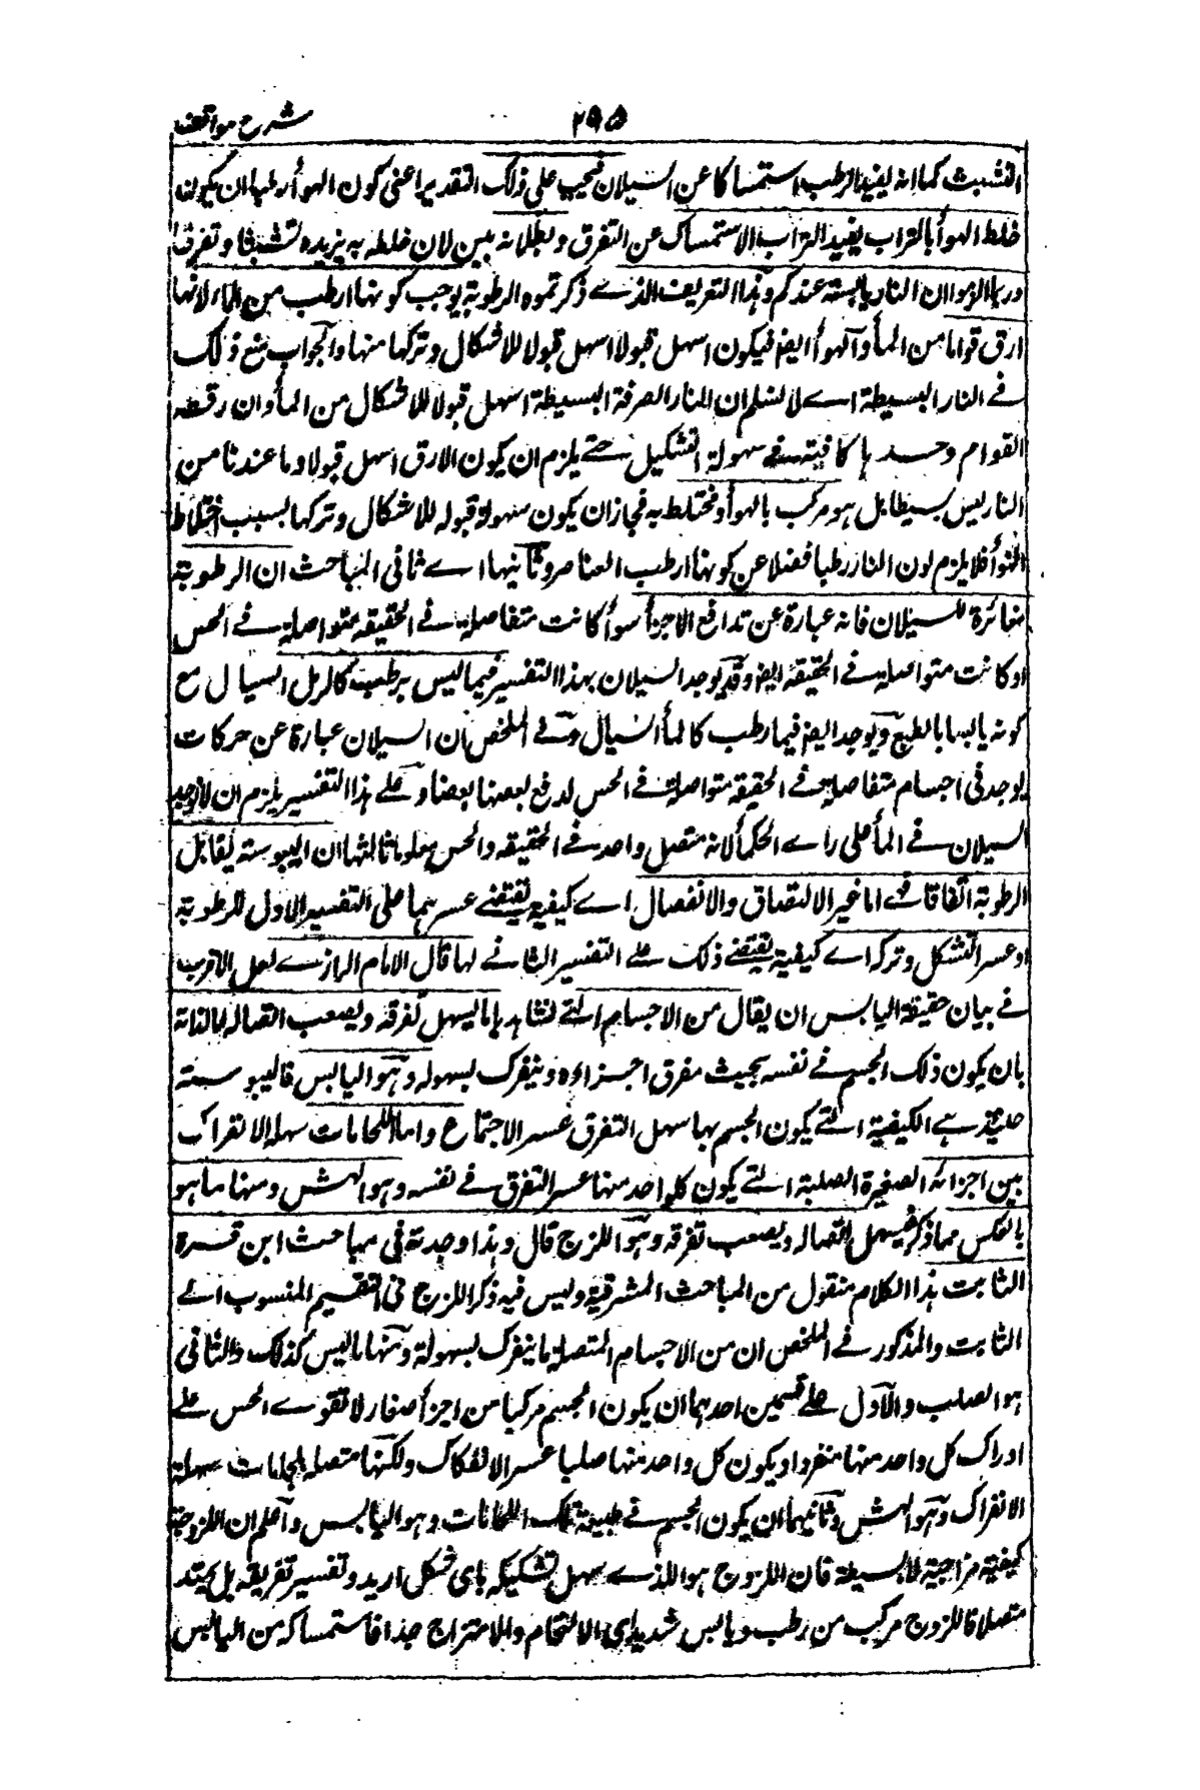 شرح مواقف
٢٩٥
التشبث كما انه يفيد الرطب استمساكا عن السيلان فيجب على ذلك التقدير اعنى كون الهوأ رطبا ان يكون
خلط الهوأ بالتراب يفيد التراب الاستمساك عن التفرق و بطلانه بين لان خلطه به يزيده تشبثا و تفرقا
و ربما الزموا ان النار يابسة عندكم و هذا التعريف الذے ذكرتموه الرطوبة يوجب كونها ارطب من الماء لانها
ارق قواما من المأ و الهوأ ايض فيكون اسهل قبولا اسهل قبولا للاشكال و تركها منها و الجواب منع ذلك
فے النار البسيطة اے لا نسلم ان النار الصرفة البسيطة اسهل قبولا للاشكال من المأ و ان رقة
القوام وحدها كافية فے سهولة التشكيل حتے يلزم ان يكون الارق اسهل قبولا و ما عندنا من
النار ليس بسيطا بل هو مركب بالهوأ و مختلط به فجاز ان يكون سهولة قبوله للاشكال و تركها بسبب اختلاط
الهوأ فلا يلزم كون النار رطبا فضلا عن كونها ارطب العناصر و ثانيها اے ثانى المباحث ان الرطوبة
مغائرة للسيلان فانه عبارة عن تدافع الاجزأ سوأ كانت متفاصلة فے الحقيقة متواصلة فے الحس
او كانت متواصلة فے الحقيقة ايض و قد يوجد السيلان بهذا التفسير فيما ليس برطب كالرمل السيال مع
كونه يابسا بالطبع و يوجد ايض فيما رطب كالمأ السيال و فے الملخص ان السيلان عبارة عن حركات
يوجد فى اجسام متفاصلة فے الحقيقة متواصلة فے الحس لدفع بعضها بعضا و علے هذا التفسير يلزم ان لا يوجد
السيلان فے المأ على راے الحكمأ لانه متصل واحد فے الحقيقة و الحس معا و ثالثها ان اليبوسة يقابل
الرطوبة اتفاقا فهے اما عسر الالتصاق و الانفصال اے كيفية يقتضے عسرهما على التفسير الاول للرطوبة
او عسر التشكل و تركه اے كيفية يقتضے ذلك علے التفسير الثانے لها قال الامام الرازے لعل الاقرب
فے بيان حقيقة اليابس ان يقال من الاجسام التے نشاهدها ما يسهل تفرقه و يصعب اتصاله بالذات
بان يكون ذلك الجسم فے نفسه بحيث مفرق اجزاءه و ينفرك بسهولة و هو اليابس فاليبوسة
حينئذ هے الكيفية التے يكون الجسم بها سهل التفرق عسر الاجتماع و اما اللحامات سهلة الانفراك
بين اجزائه الصغيرة الصلبة التے يكون كل واحد منها عسر التفرق فے نفسه و هو الهش و منها ما هو
بالعكس مما ذكر فيسهل اتصاله و يصعب تفرقه و هو اللزج قال و هذا وجدته فى مباحث ابن قرة
الثابت هذا الكلام منقول من المباحث المشرقية و ليس فيه ذكر اللزج فى التقسيم المنسوب الے
الثابت و المذكور فے الملخص ان من الاجسام المتصلة ما ينفرك بسهولة و منها ما ليس كذلك و الثانى
هو الصلب و الاول علے قسمين احدهما ان يكون الجسم مركبا من اجزأ صغار لا تقوے الحس علے
ادراك كل واحد منها منفردا و يكون كل واحد منها صلبا عسر الانفكاك و لكنها متصلة بلحامات سهلة
الانفراك و هو الهش و ثانيهما ان يكون الجسم فے طبيعة تلك اللحامات و هو اليابس و اعلم ان اللزوجة
كيفية مزاجية لا بسيطة فان اللزوج هو الذے سهل تشكيكه باى شكل اريد و تفسير تفريقه بل يمتد
متصلا فاللزوج مركب من رطب و يابس شديداى الالتحام و الامتزاج جدا فاستمساكه من اليابس